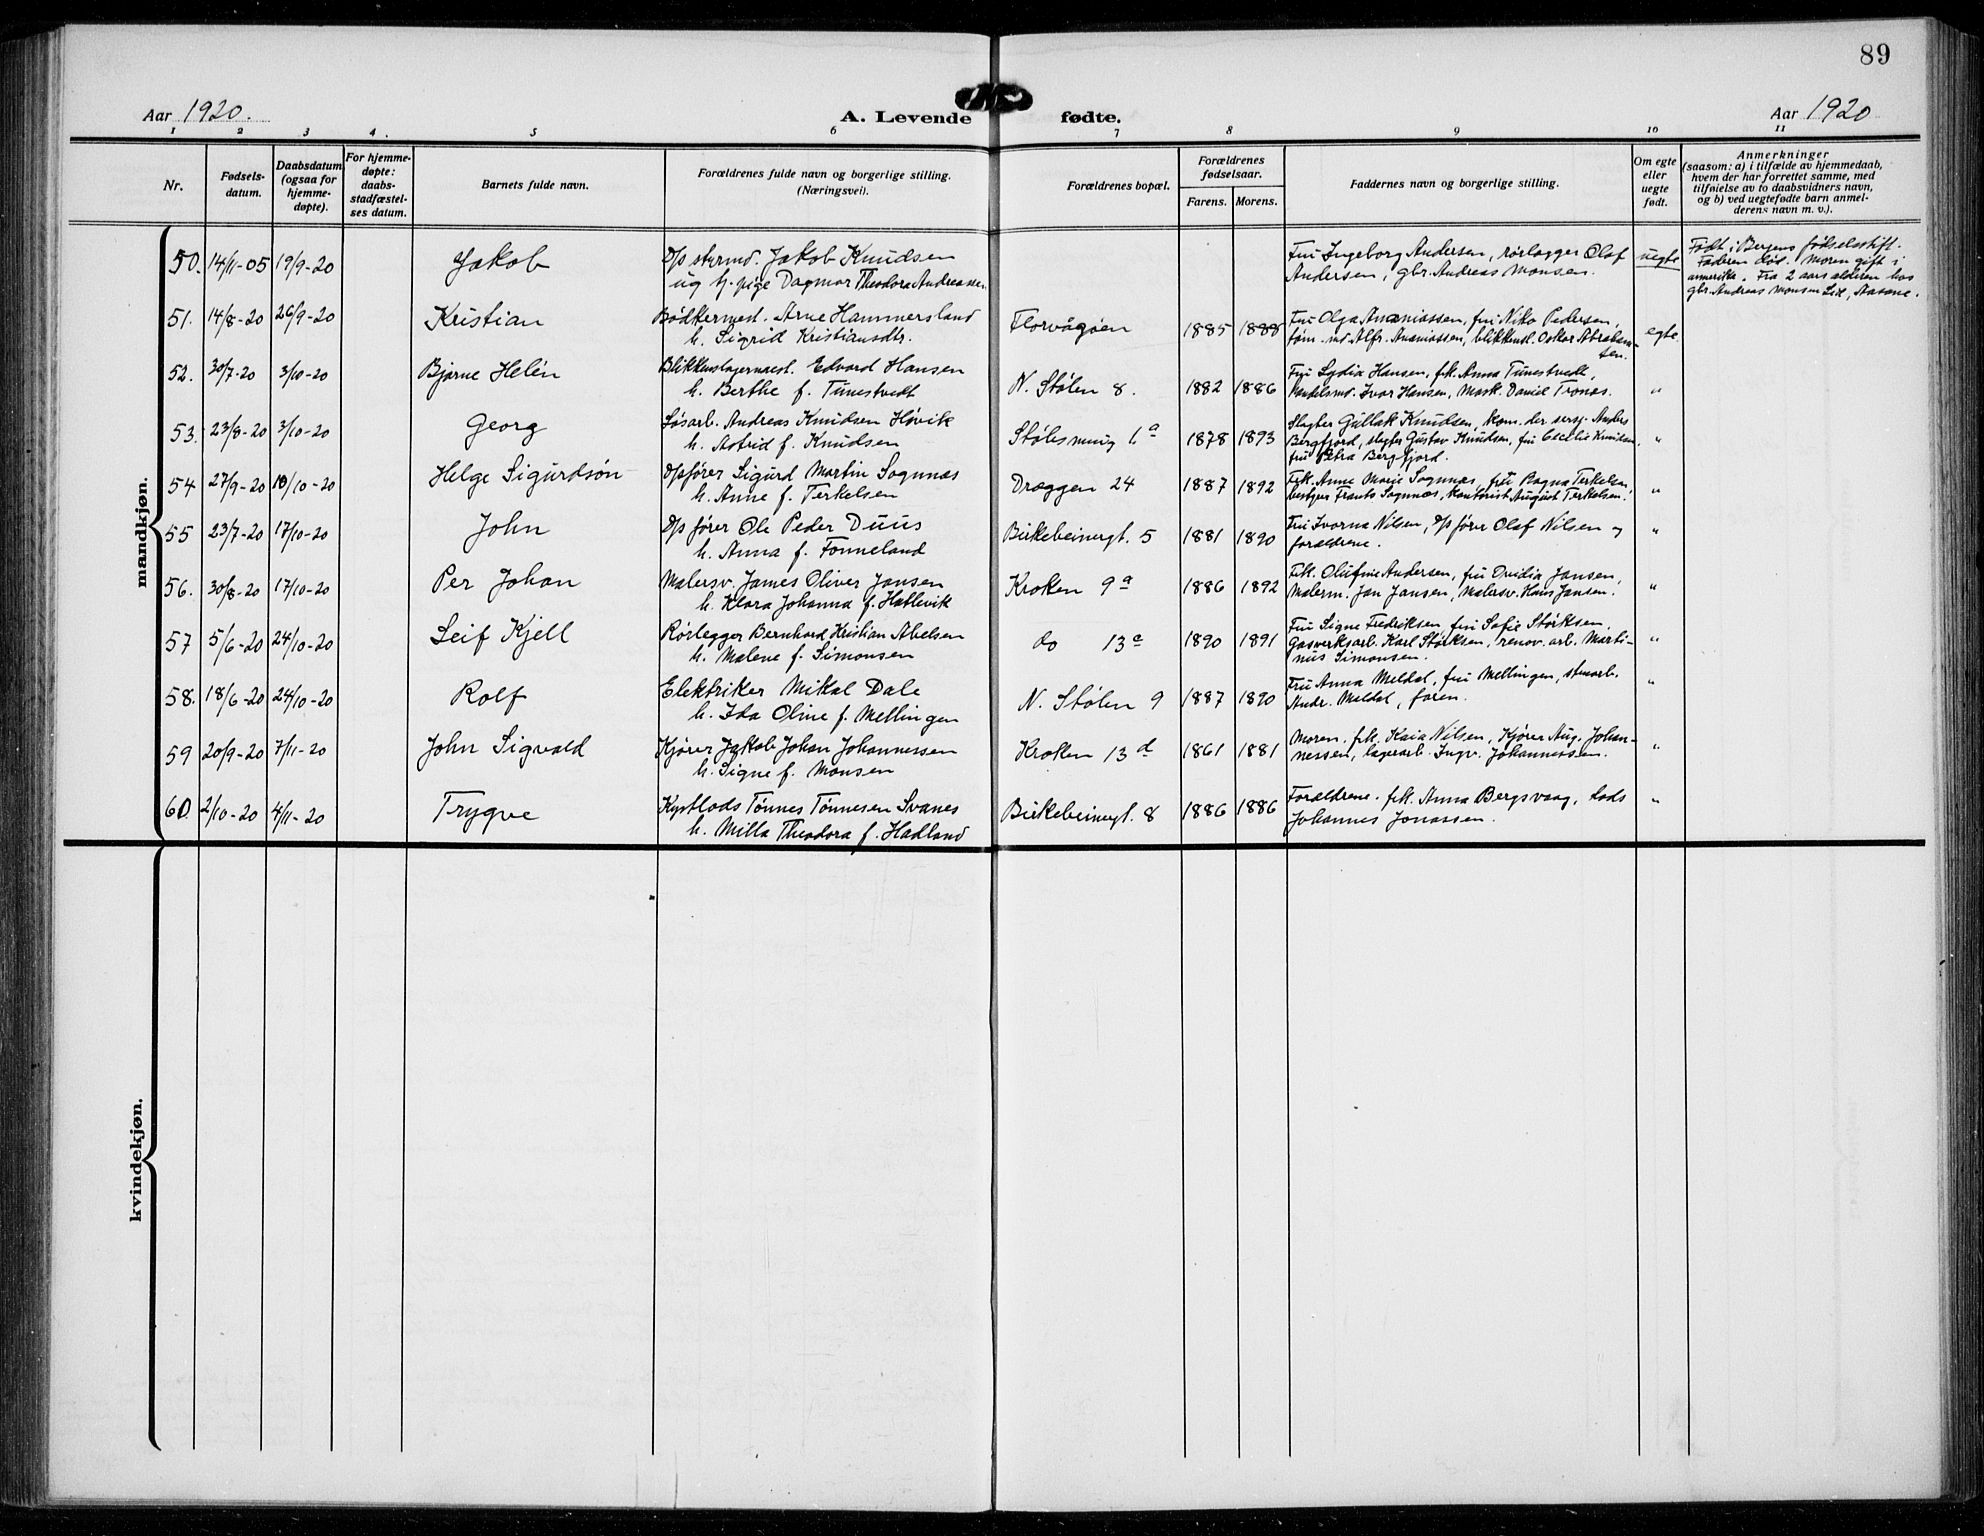 89
Aar 1920. A. Levende fødte. Aar 1920
1 2 3 4. 5 6 7 8 9 10 11
Nr.
Fødsels-
datum.
Daabsdatum
(ogsaa for
hjemme-
døpte).
For hjemme-
døpte:
daabs-
stadfæstel-
ses datum.
Barnets fulde navn.
Forældrenes fulde navn og borgerlige stilling.
(Næringsvei).
Forældrenes bopæl.
Forældrenes
fødselsaar.
Farens. Morens.
Faddernes navn og borgerlige stilling.
Om egte
eller
uegte
født.
Anmerkninger
(saasom: a) i tilfælde av hjemmedaab,
hvem der har forrettet samme, med
tilføielse av to daabsvidners navn,
og b) ved uegtefødte barn anmel-
derens navn m. v.).
mandkjøn.
50. 14/11-05 19/9-20 Jakob
D/p styrmd. Jakob Knudsen
ug tj. pige Dagmar Theodora Andreassen.
Fru Ingeborg Andersen, rørlægger Olaf
Andersen, gbr. Andreas Monsen.
uegte
Født i Bergens fødselsstift.
Faderen død. Moren gift i
amerika. Fra 2 aars alderen hos
gbr. Andreas Monsen Lid, Aasane.
51. 14/8-20 26/9-20 Kristian
Bødkermest. Arne Hammersland
h. Sigrid Kristiansdtr.
Florvågøen 1885 1888
Fru Olga Ananiassen, fru Niko Pedersen,
tøm. md Alfr. Ananiassen, blikkensl. Oskar Abraham-
sen.
egte
52. 30/7-20 3/10-20 Bjarne Helén
Blikkenslagermest. Edvard Hansen
h. Berthe f. Tunestvedt
N. Stølen 8. 1882 1886
Fru Lydia Hansen, frk. Anna Tunestvedt,
Handelsmd. Ivar Hansen, Mask. Daniel Tronæs.
"
53. 23/8-20 3/10-20 Georg
Løsarb. Andreas Knudsen Høvik
h. Astrid f. Knudsen
Stølesmug 6a 1878 1893
Slagter Gullak Knudsen, kom. der sersj. Anders
Bergfjord, slagter Gustav Knudsen, fru Cecilie Knudsen,
fru Petra Bergfjord.
"
54 27/9-20 10/10-20 Helge Sigurdsøn
D/pfører Sigurd Martin Sognnæs
h. Anne f. Terkelsen
Dræggen 24 1887 1892
Frk. Anne Marie Sognnæs, fru Ragna Terkelsen,
bestyer Frants Sognnæs, kontorist August Terkelsen.
"
55 23/7-20 17/10-20 John
D/p fører Ole Peder Duus
h. Anna f. Fonneland
Birkebeinergt. 5 1881 1890
Fru Ivorna Nilsen, d/p fører Olaf Nilsen og
forældrene.
"
56. 30/8-20 17/10-20 Per Johan
Malersv. James Oliver Jansen
h. Klara Johanna f. Hatlevik
Kroken 9a 1886 1892
Frk. Olufine Andersen, fru Ovidia Jansen,
Malerm. Jan Jansen, Malersv. Hans Jansen.
"
57 5/6-20 24/10-20 Leif Kjell
Rørlegger Bernhard Kristian Abelsen
h. Malene f. Simonsen
do 13a 1890 1891
Fru Signe Fredriksen, fru Sofie Størksen,
Gasverksarb. Karl Størksen, renov. arb. Marti-
nus Simonsen.
"
58. 18/6-20 24/10-20 Rolf
Elektriker Mikal Dale
h. Ida Oline f. Mellingen
N. Stølen 9 1887 1890
Fru Anna Meldal, fru Mellingen, stenarb.
Andr. Meldal, faren.
"
59 20/9-20 7/11-20 John Sigvald
Kjører Jakob Johan Johannessen
h. Signe f. Monsen
Kroken 13d 1861 1881
Moren, frk. Kaia Nilsen, Kjører Aug. Johan-
nessen, lagerarb. Ingv. Johannessen.
"
60 2/10-20 4/11-20 Trygve
Kystlods Tønnes Tønnesen Svanes
h. Milla Theodora f. Hadland
Birkebeinergt. 8 1886 1886
Forældrene. frk. Anna Bergsvaag, Lods
Johannes Jonassen.
"
kvindekjøn.